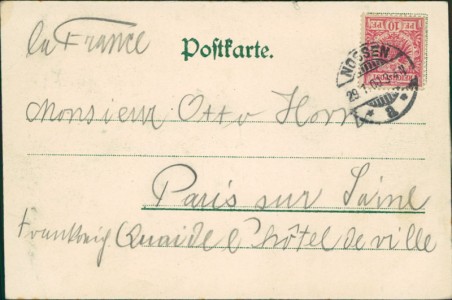 la France
Postkarte.
NOSSEN
Monsieur Otto Horn
Paris sur Saine
Frankreig Quai de l'hôtel de ville